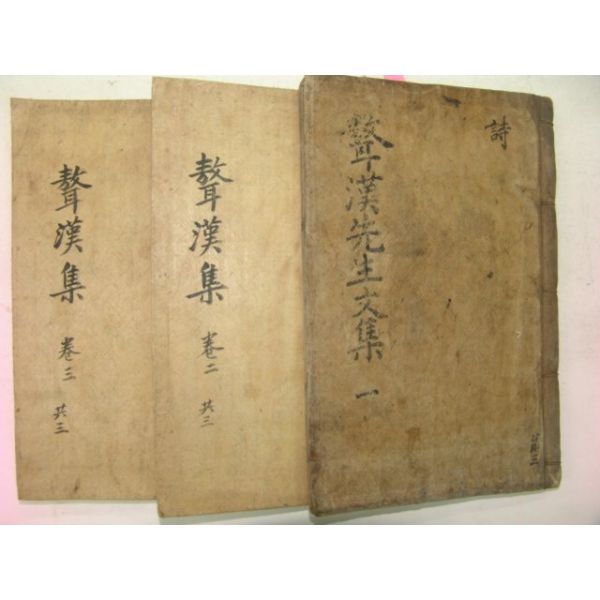 詩
聱漢先生文集 一
聱漢集 卷二 共三
聱漢集 卷三 共三